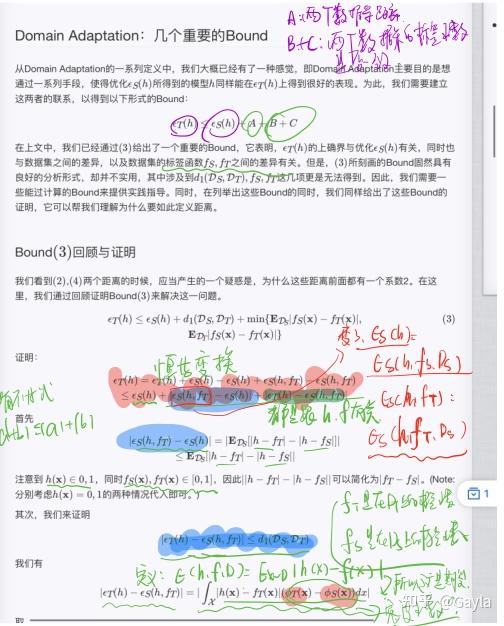 A:两个数据
B+C:两个数据的标签函数
Domain Adaptation：几个重要的Bound
从Domain Adaptation的一系列定义中，我们大概已经有了一种感觉，即Domain Adaptation主要目的是想
通过一系列手段，使得优化ϵS(h)所得到的模型h同样能在ϵT(h)上得到很好的表现。为此，我们需要建
立这两者的联系，以得到以下形式的Bound：
ϵT(h) ≤ ϵS(h) + A + B + C
在上文中，我们已经通过(3)给出了一个重要的Bound，它表明，ϵT(h)的上确界与优化ϵS(h)有关，同时也
与数据集之间的差异，以及数据集的标签函数fS, fT之间的差异有关。但是，(3)所刻画的Bound固然具有
良好的分析形式，却并不实用，其中涉及到d1(DS, DT), fS, fT这几项更是无法得到。因此，我们需要一
些能过计算的Bound来提供实践指导。同时，在列举出这些Bound的同时，我们同样给出了这些Bound的
证明，它可以帮我们理解为什么要如此定义距离。
Bound(3)回顾与证明
我们看到(2),(4)两个距离的时候，应当产生的一个疑惑是，为什么这些距离前面都有一个系数2。在这
里，我们通过回顾证明Bound(3)来解决这一问题。
ϵT(h) ≤ ϵS(h) + d1(DS, DT) + min{EDS|fS(x) − fT(x)|, (3)
EDT|fS(x) − fT(x)|}
证明：
恒等变换
ϵT(h) = ϵT(h) + ϵS(h) − ϵS(h) + ϵS(h, fT) − ϵS(h, fT)
≤ ϵS(h) + |ϵS(h, fT) − ϵS(h)| + |ϵT(h) − ϵS(h, fT)|
ϵS(h)=
ϵS(h,fS,DS)
ϵS(h,fT):
ϵS(h,fT,DS)
首先
|a+b|≤|a|+|b|
|ϵS(h, fT) − ϵS(h)| = |EDS[|h − fT| − |h − fS|]|
≤ EDS||h − fT| − |h − fS||
注意到 h(x) ∈ 0, 1，同时fS(x), fT(x) ∈ [0, 1]，因此||h − fT| − |h − fS||可以简化为|fT − fS|。(Note:
分别考虑h(x) = 0, 1的两种情况代入即可。)
1
其次，我们来证明
|ϵT(h) − ϵS(h, fT)| ≤ d1(DS, DT)
我们有
定义：ϵ(h,f,D)=Ex~D|h(x)−f(x)|
|ϵT(h) − ϵS(h, fT)| = |∫X |h(x) − fT(x)|(ϕT(x) − ϕS(x))dx|
知乎 @Gayla
取